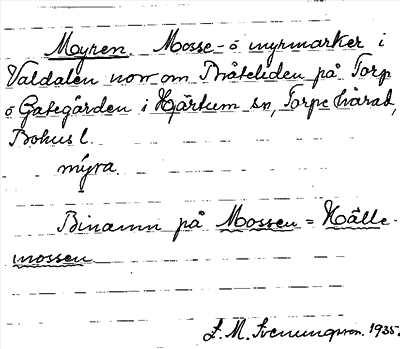 Myren. Mosse- o myrmarker i
Valdalen norr om Bråteliden på Torp
o Gategården i Hjärtum sn, Torpe härad,
Bohus l.
mýra.
Binamn på Mossen = Hälle-
mossen
S. M. Svenungsson. 1935.